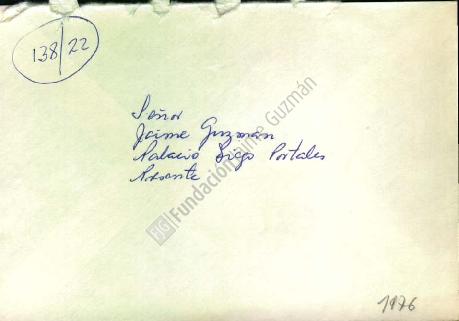 138/22
Señor
Jaime Guzmán
Palacio Diego Portales
Presente
Fundación Jaime Guzmán
1976